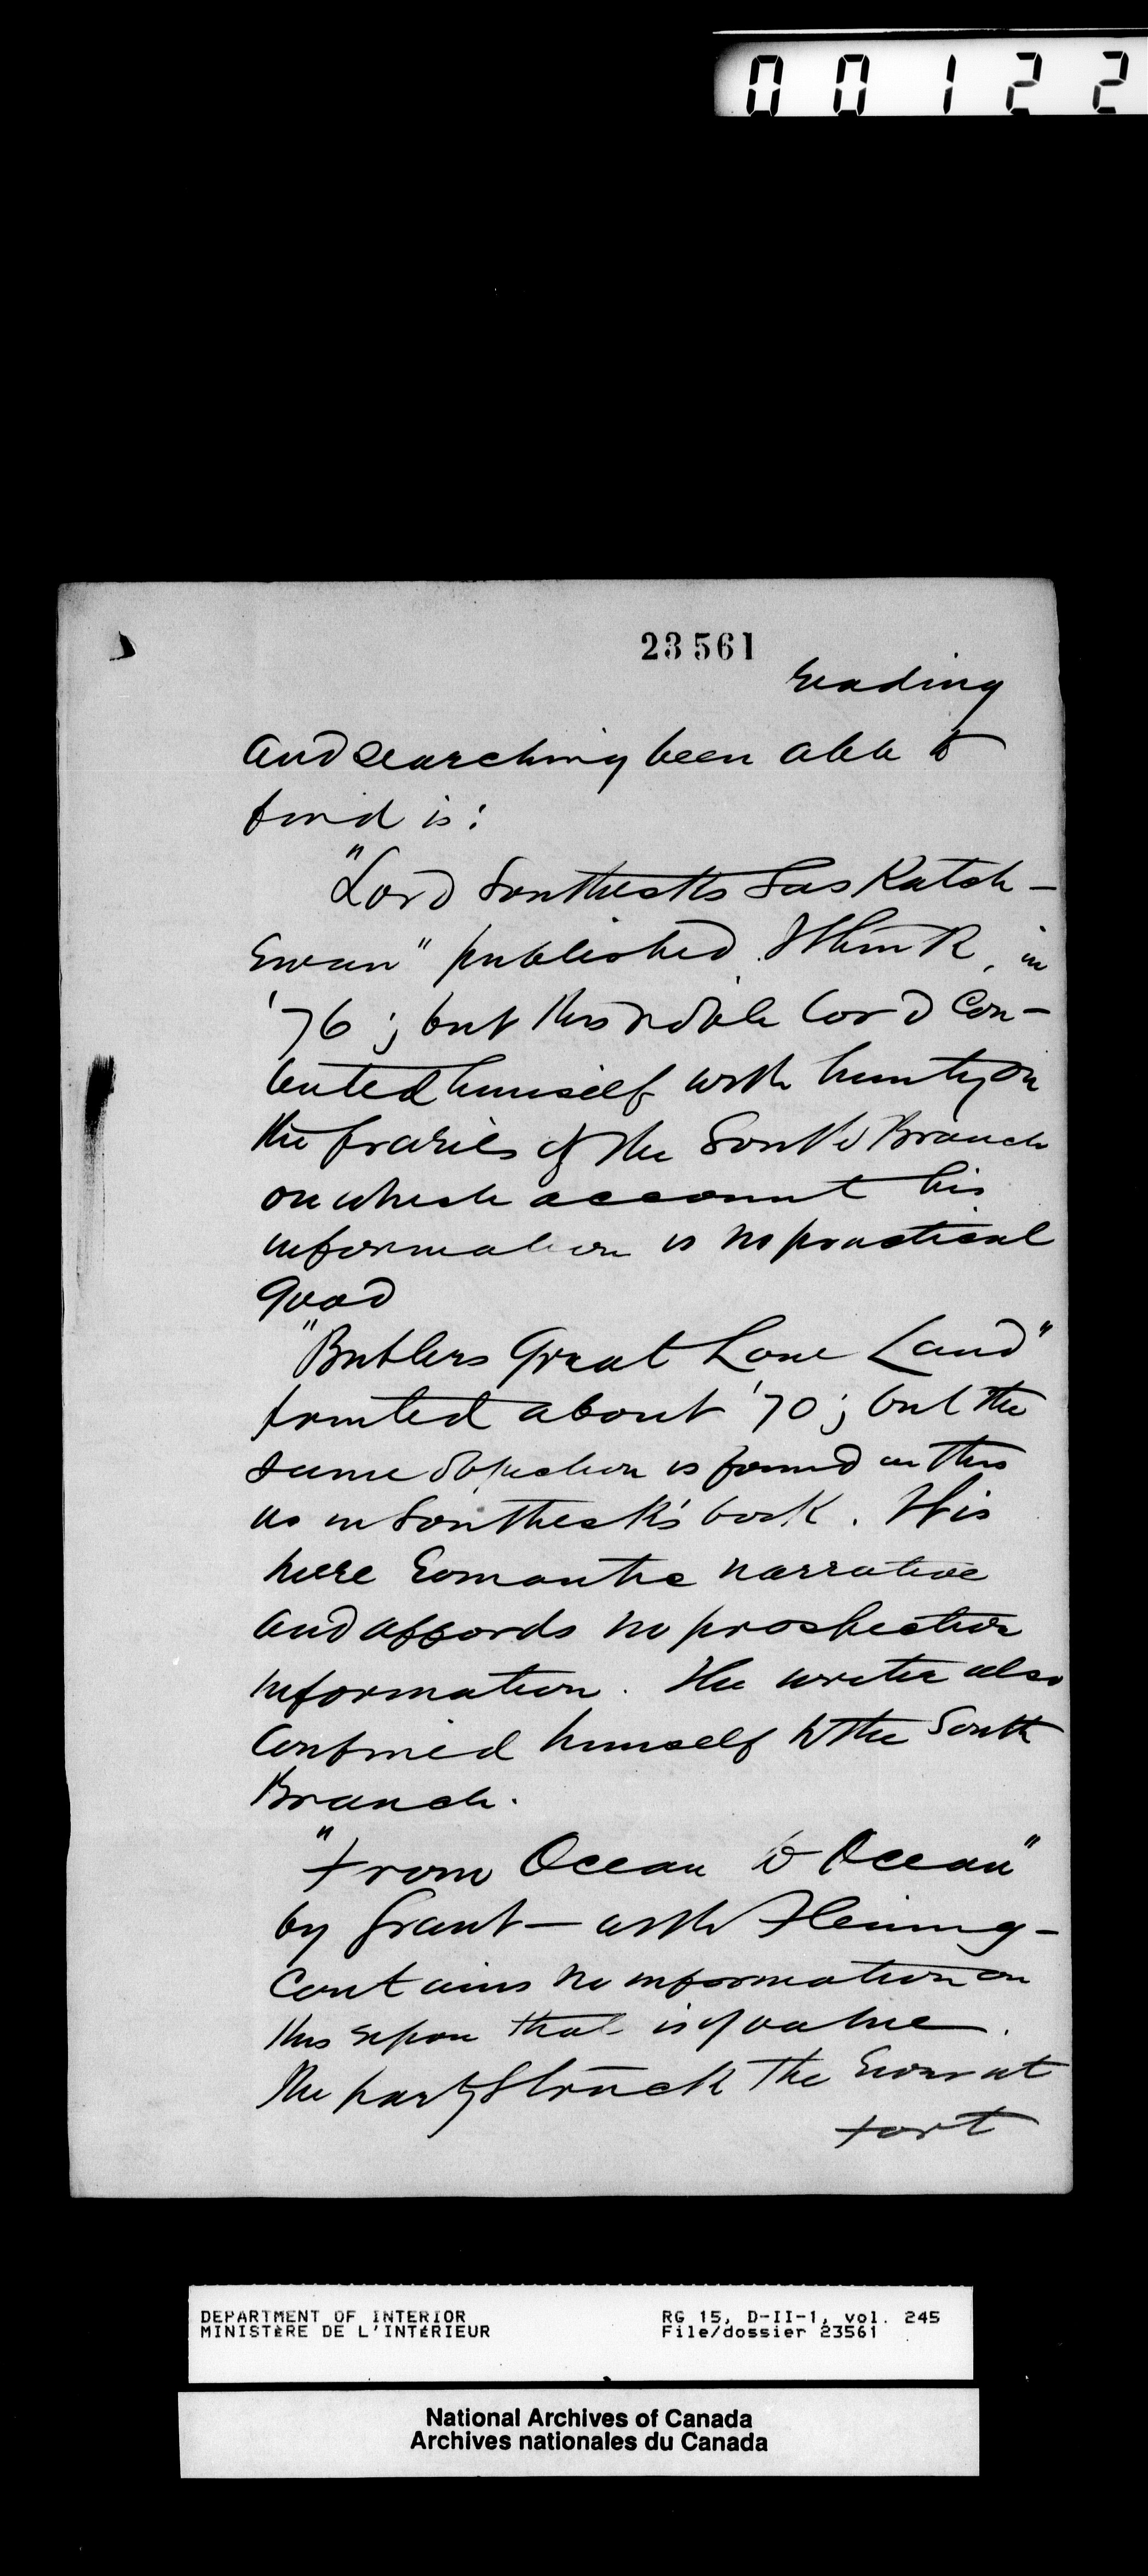 00122
23561
reading
and searching been able to
find is:
"Lord Southesk's Saskatch-
ewan" published, I think, in
'76; but this noble Lord con-
tented himself with hunting on
the prairies of the South Branch
on which account his
information is no practical
good
"Butlers Great Lone Land"
printed about '70; but the
same objection is found in this
as in Southesk's book. It is
mere romantic narrative
and affords no prospective
information. The writer also
confined himself to the South
Branch.
"From Ocean to Ocean"
by Grant — with Fleming —
contains no information on
this region that is of value.
The party struck the River at
Fort
DEPARTMENT OF INTERIOR
MINISTÈRE DE L'INTÉRIEUR
RG 15, D-II-1, vol. 245
File/dossier 23561
National Archives of Canada
Archives nationales du Canada